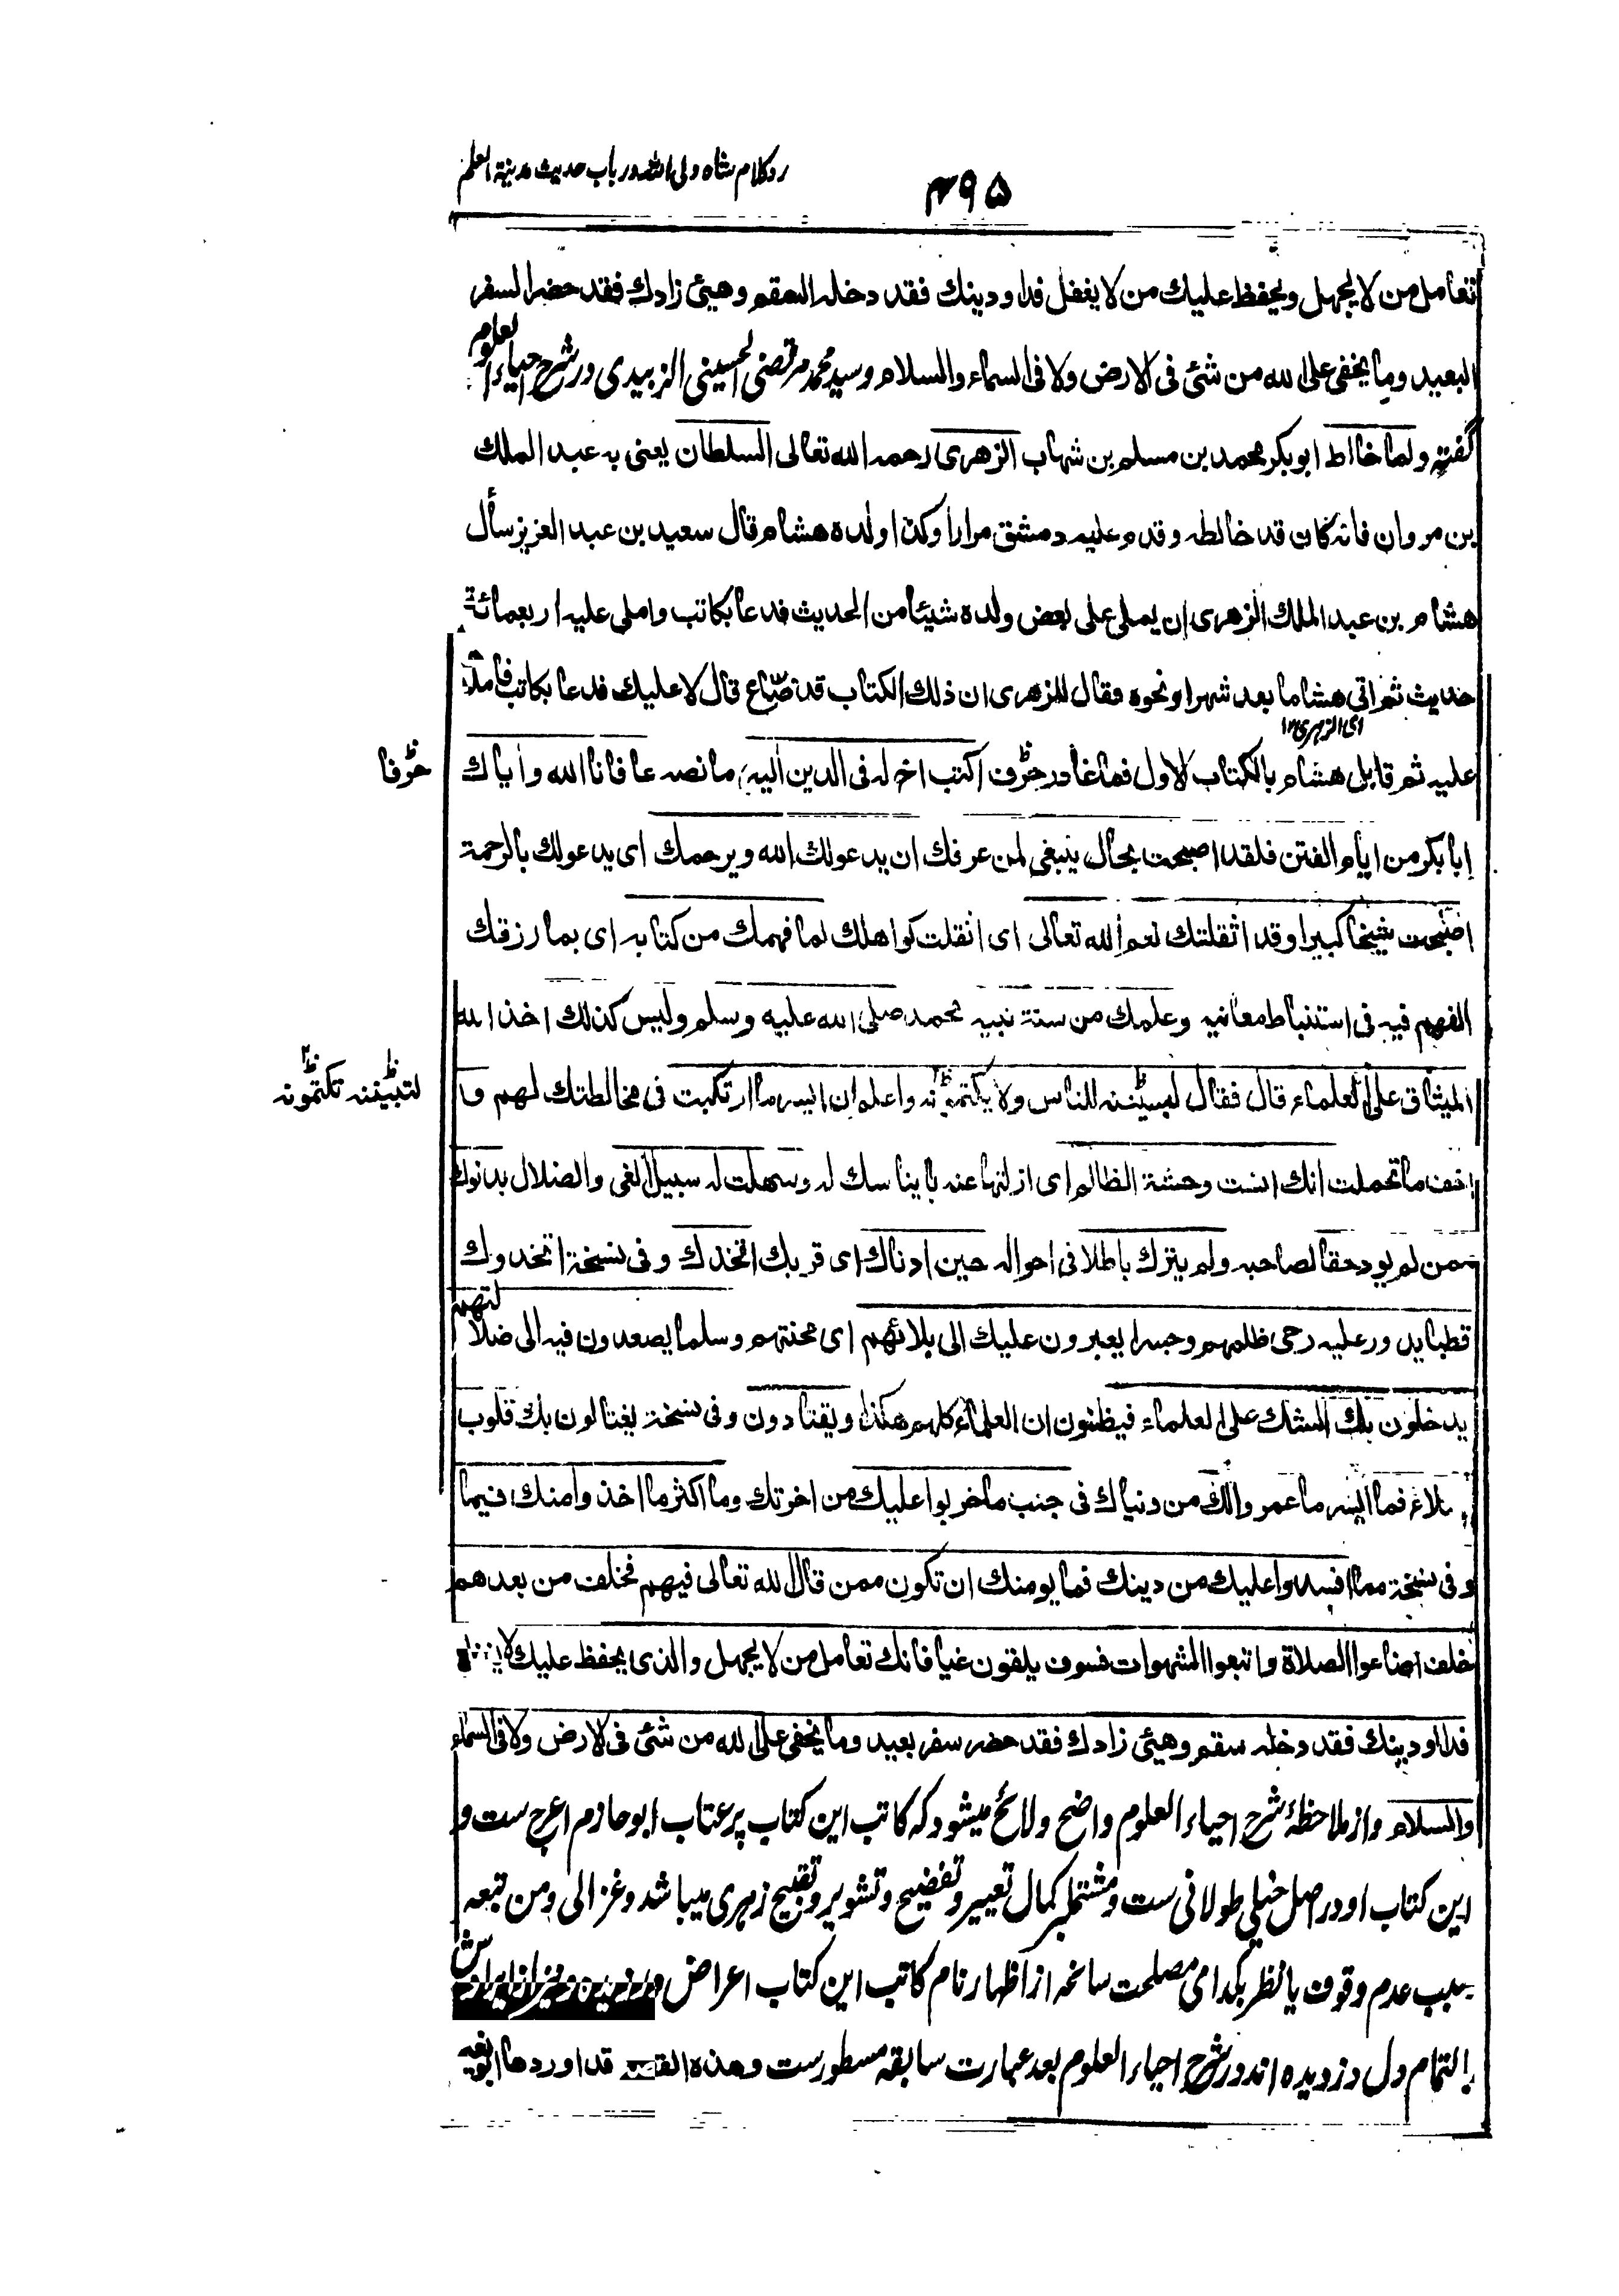 رد کلام شاه ولی الله در باب حدیث مدینة العلم
۴۹۵
تعامل من لا یجهل ویحفظ علیك من لا یغفل فداو دینك فقد دخله السقم وهیئ زادك فقد حضر السفر
البعید وما یخفی علی الله من شئ فی الارض ولا فی السماء والسلام وسید محمد مرتضی الحسینی الزبیدی در شرح احیاء العلوم
گفته ولما خالط ابو بکر محمد بن مسلم بن شهاب الزهری رحمه الله تعالی السلطان یعنی به عبد الملك
بن مروان فانه کان قد خالطه وقدم علیه دمشق مرارا وکذا ولده هشام قال سعید بن عبد العزیز سأل
هشام بن عبد الملك الزهری ان یملی علی بعض ولده شیئا من الحدیث فدعا بکاتب واملی علیه اربعمائة
حدیث ثم اتی هشاما بعد شهر او نحوه فقال للزهری ان ذلك الکتاب قد ضاع قال لا علیك فدعا بکاتب فاملاه
ای الزهری ۱۲
علیه ثم قابل هشام بالکتاب الاول فما غادر حرف اکتب اخ له فی الدین الیه ما نصه عافانا الله وایاك
حرفا
ابا بکر من ایام الفتن فلقد اصبحت بحال ینبغی لمن عرفك ان یدعو لك الله ویرحمك ای یدعو لك بالرحمة
اصبحت شیخا کبیرا وقد اثقلتك نعم الله تعالی ای اثقلت کواهلك لما فهمك من کتابه ای بما رزقك
الفهم فیه فی استنباط معانیه وعلمك من سنة نبیه محمد صلی الله علیه وسلم ولیس کذلك اخذ الله
المیثاق علی العلماء قال فقال لیبیننه للناس ولا یکتمونه واعلم ان ایسر ما ارتکبت فی مخالطتك لهم وا
لتبیننه تکتمونه
خف ما تحملت انك انست وحشة الظالم ای ازلتها عنه بایناسك له وسهلت له سبیل الغی والضلال بدنوك
ممن لم یود حقا لصاحبه ولم یترك باطلا فی احواله حین ادناك ای قربك اتخذك وفی نسخة اتخذوك
قطبا یدور علیه رحی ظلمهم وجسرا یعبرون علیك الی بلائهم ای محنتهم وسلما یصعدون فیه الی ضلالتهم
یدخلون بك الشك علی العلماء فیظنون ان العلماء کلهم هکذا ویقتادون وفی نسخة یغتالون بك قلوب
فما ایسر ما عمروا لك من دنیاك فی جنب ما خربوا علیك من اخرتك وما اکثر ما اخذوا منك فیما
وفی نسخة مما افسدوا علیك من دینك فما یومنك ان تکون ممن قال الله تعالی فیهم فخلف من بعدهم
خلف اضاعوا الصلاة واتبعوا الشهوات فسوف یلقون غیا فانك تعامل من لا یجهل والذی یحفظ علیك لا
فداو دینك فقد دخله سقم وهیئ زادك فقد حضر سفر بعید وما یخفی علی الله من شئ فی الارض ولا فی السماء
والسلام واز ملاحظهٔ شرح احیاء العلوم واضح ولائح میشود که کاتب این کتاب پر عتاب ابو حازم اعرج ست و
این کتاب او در اصل خیلی طولانی ست ومشتمل بر کمال تعییر وتفضیح وتشویر وتقبیح زهری میباشد وغزالی ومن تبعه
بسبب عدم وقوف یا نظر بکدامی مصلحت سانحه از اظهار نام کاتب این کتاب اعراض
بالتمام دل دزدیده اند ودر شرح احیاء العلوم بعد عبارت سابقه مسطورست وهذه القصه قد اوردها ابو نعیم